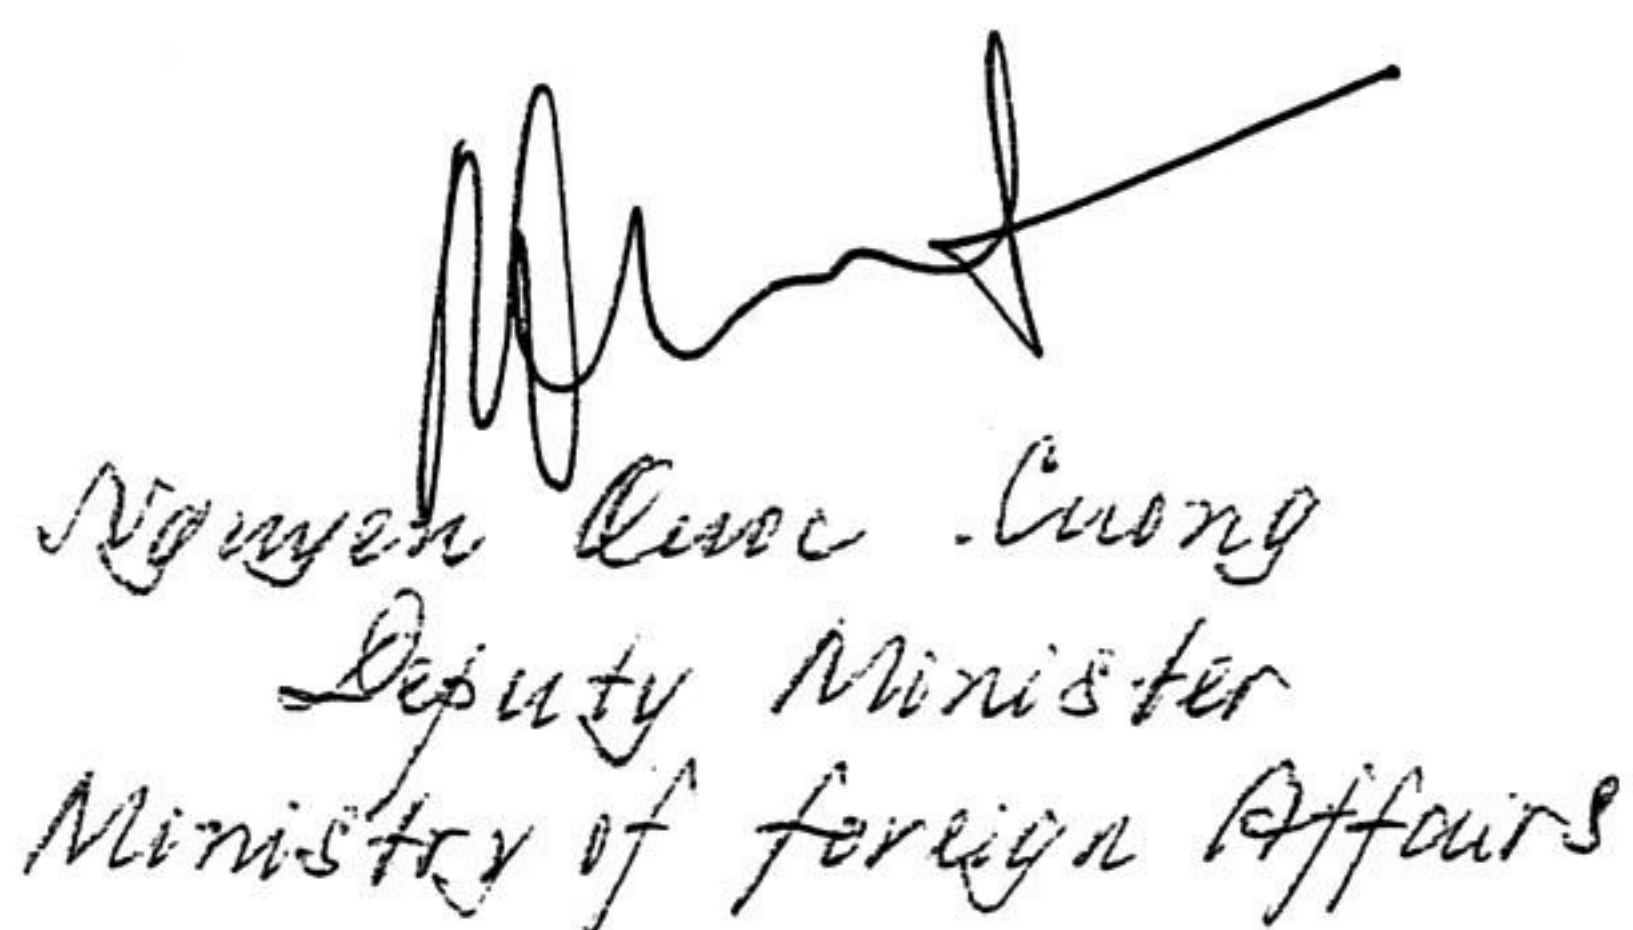 Nguyen Quoc Cuong
Deputy Minister
Ministry of foreign Affairs